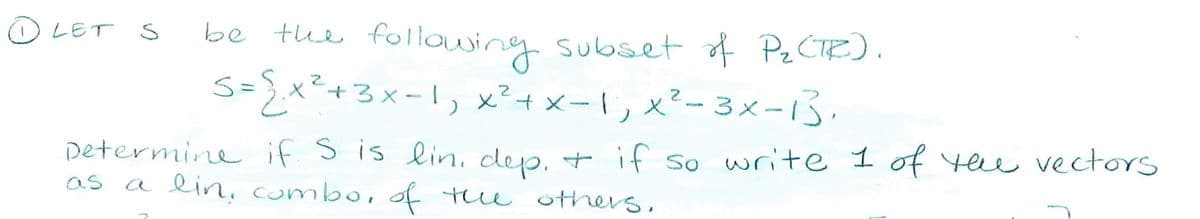 ① LET S be the following subset of P₂(ℝ).
S={x²+3x-1, x²+x-1, x²-3x-1}.
Determine if S is lin. dep. + if so write 1 of the vectors
as a lin. combo. of the others.